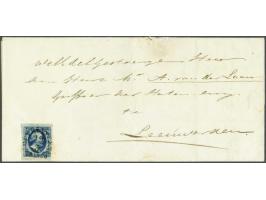 Weledelgestrenge Heer
den Heere Mr. A. van der Laan
Griffier der Staten enz.
te
Leeuwarden